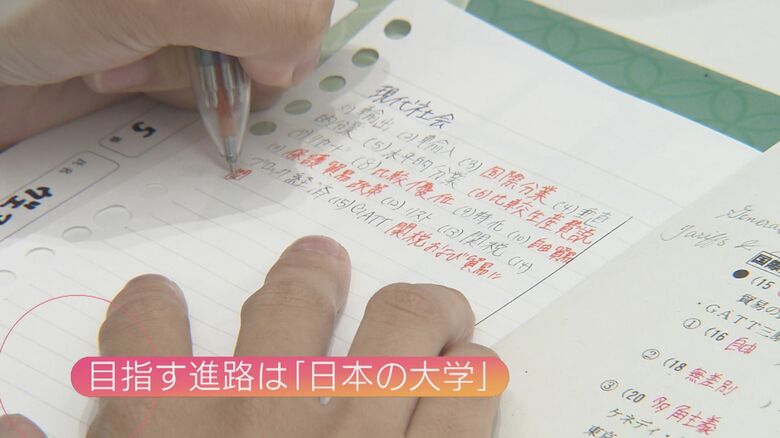 現代社会
(1) 輸出 (2) 輸入 (3) 国際分業 (4) 垂直
的分業 (5) 水平的分業 (6) 比較生産費説
(7) リカード (8) 比較優位 (9) 特化 (10) 自由貿易
(11) 保護貿易政策 (12) リスト (13) 関税 (14)
ブロック経済 (15) GATT 関税および貿易
5
General
Tariffs
国際
●(15
貿易の
・GATT三
①(16 自由
②(18 無差別
③(20 多角主義
ケネディ・
東京
目指す進路は「日本の大学」